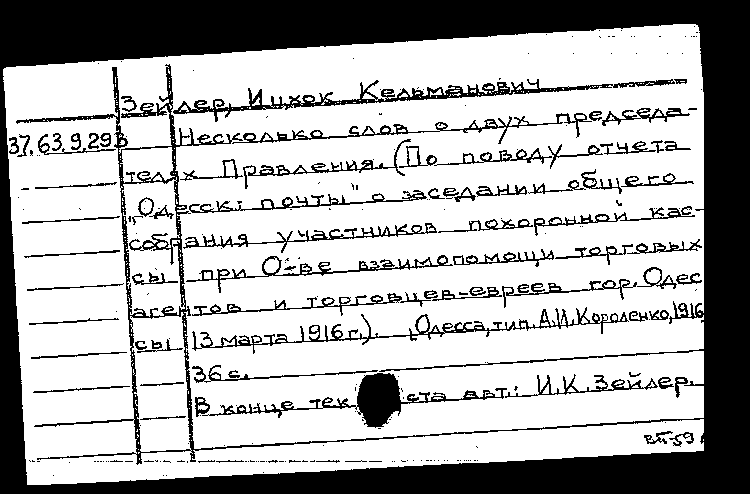 Зейлер, Ицхок Кельманович
37.63.9.293 Несколько слов о двух председа-
телях Правления. (По поводу отчета
„Одесск: почты" о заседании общего
собрания участников похоронной кас-
сы при О-ве взаимопомощи торговых
агентов и торговцев-евреев гор. Одес
сы 13 марта 1916 г.). Одесса, тип. А.И. Короленко, 1916
36 с.
В конце тек ста авт.: И.К. Зейлер.